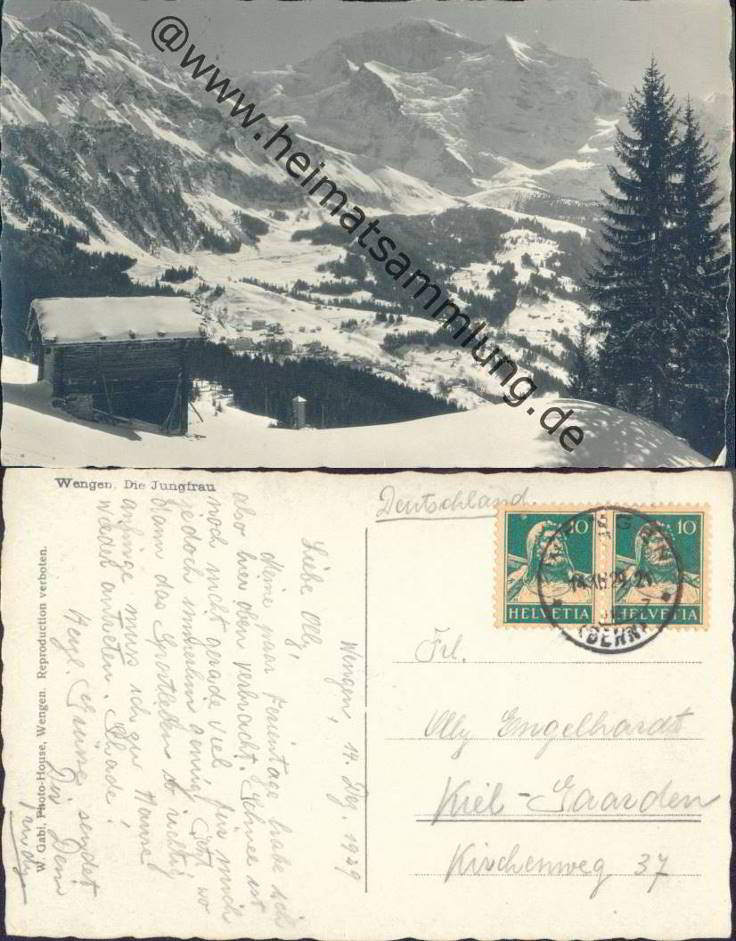 @www.heimatsammlung.de
Wengen. Die Jungfrau
W. Gabi, Photo-House, Wengen. Reproduction verboten.
Wengen, 14. Dez. 1929
Liebe Olly,
Meine paar Ferientage habe ich
also hier oben verbracht. Schnee ist
noch nicht gerade viel, für mich
jedoch immerhin genug. Jetzt wo
dann das Sportleben so richtig
anfinge muss ich zu Hause
wieder antreten. Schade!
Herzl. Grüsse sendet
Dir Dein
Deutschland
10 10
HELVETIA HELVETIA
WENGEN
(BERN)
Frl.
Olly Engelhardt
Kiel-Gaarden
Kirchenweg 37